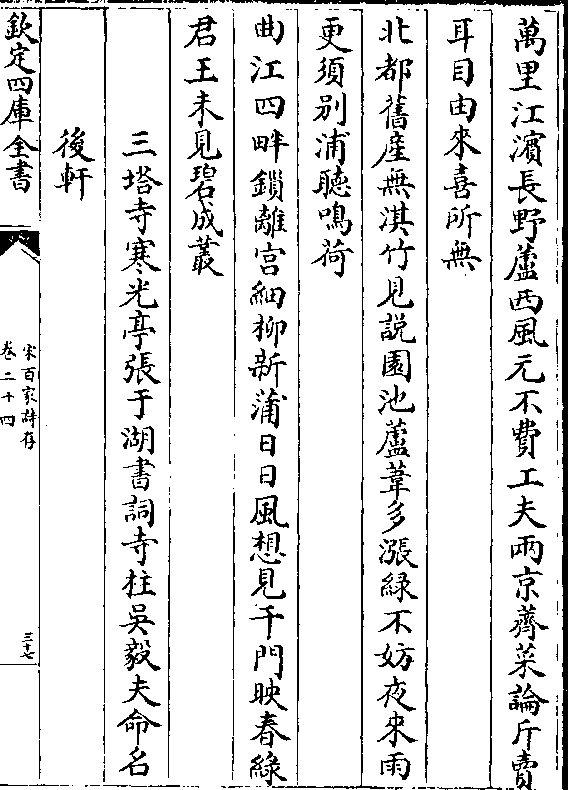 萬里江濱長野蘆西風元不費工夫兩京薺菜論斤賣
耳目由來喜所無
北都舊産無淇竹見説園池蘆葦多漲綠不妨夜來雨
更須别浦聽鳴荷
曲江四畔鎖離宫細柳新蒲日日風想見千門映春綠
君王未見碧成叢
三塔寺寒光亭張于湖書詞寺柱吳毅夫命名
後軒
欽定四庫全書
宋百家詩存
卷二十四
三十七